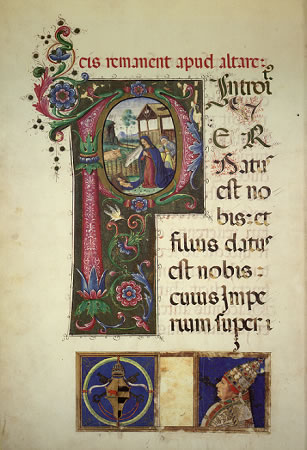 cis remanent apud altare:
Introi
P
E R
Natus
est no
bis: et
filius datus
est nobis:
cuius Impe
rium super